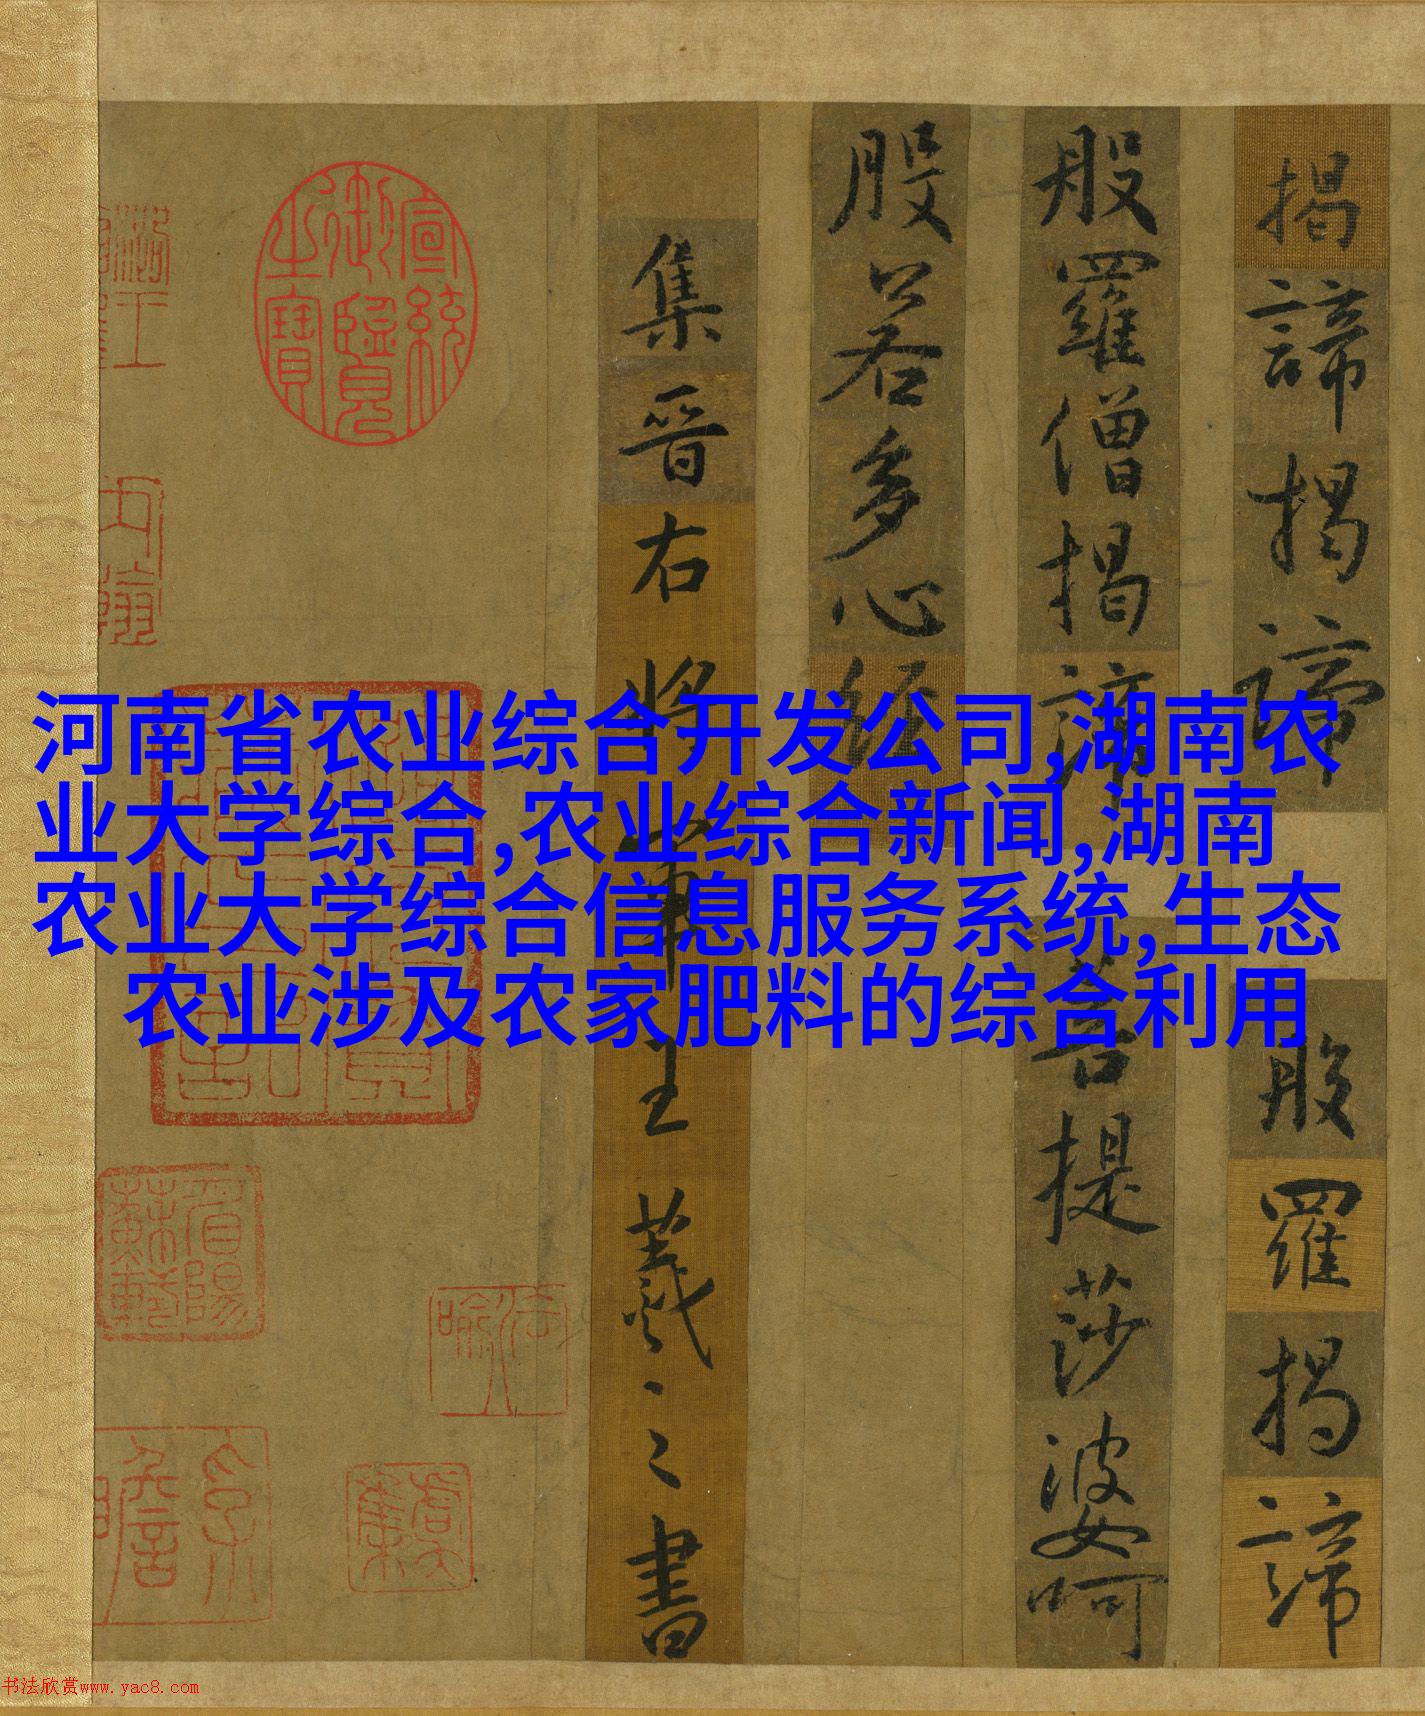 揭諦揭諦 般羅揭諦
般羅僧揭諦 菩提莎婆呵
般若多心經
集晉右將軍王羲之書
宣統御覽之寶
眉陽蘇軾
河南省农业综合开发公司,湖南农
业大学综合,农业综合新闻,湖南
农业大学综合信息服务系统,生态
农业涉及农家肥料的综合利用
书法欣赏www.yac8.com